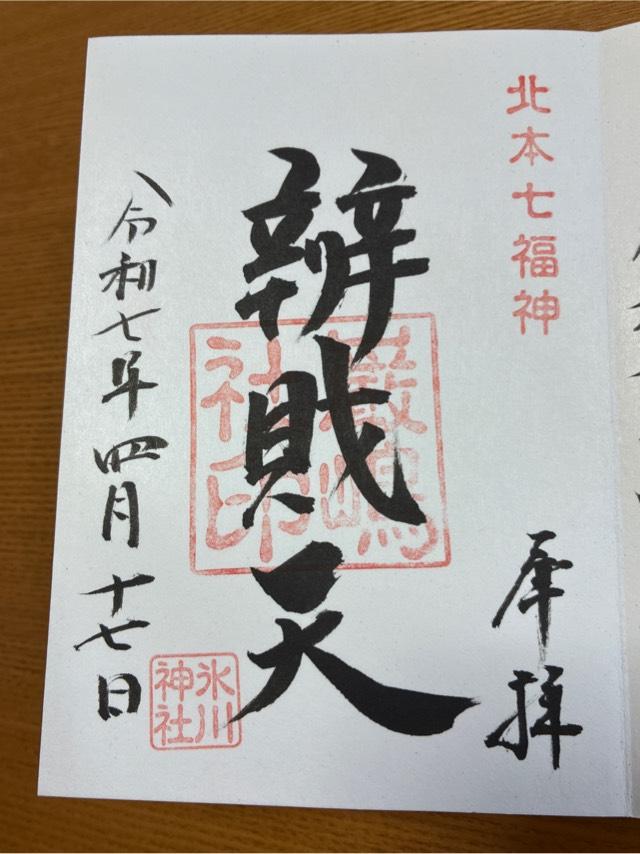 北本七福神
奉拝
辨財天
巌嶋社印
令和七年四月十七日
氷川神社